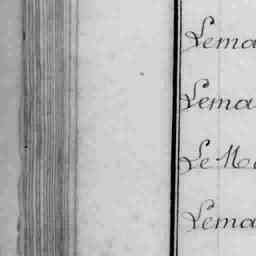 Lema
Lema
Le Ma
Lema